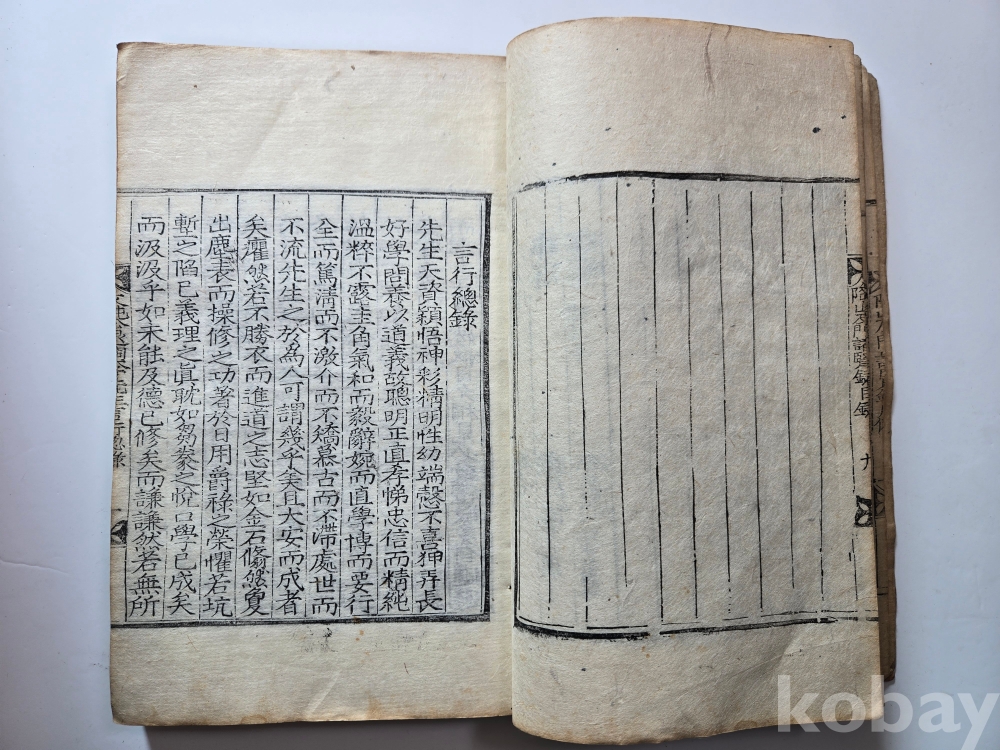 言行總錄
先生天資穎悟神彩精明性幼端慤不喜狎弄長
好學問養以道義故聰明正直孝悌忠信而精純
溫粹不露圭角氣和而毅辭婉而直學博而要行
全而篤淸而不激介而不矯慕古而不滯處世而
不流先生之於爲人可謂幾乎矣且大安而成者
矣癯然若不勝衣而進道之志堅如金石翛然夐
出塵表而操修之功著於日用爵祿之榮懼若坑
塹之陷已義理之眞耽如芻豢之悅口學已成矣
而汲汲乎如未能及德已修矣而謙謙然若無所
門諸賢錄目錄
九
kobay